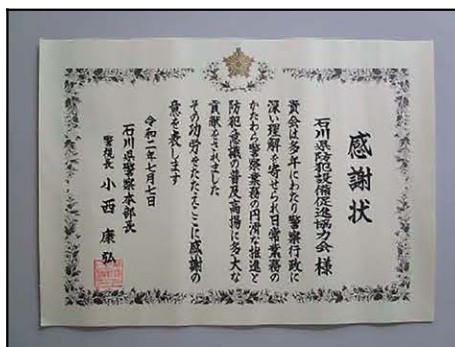 感謝状
石川県防犯設備促進協力会 様
貴会は多年にわたり警察行政に
深い理解を寄せられ日常業務の
かたわら警察業務の円滑な推進と
防犯意識の普及高揚に多大な
貢献をされました
その功労をたたえここに感謝の
意を表します
令和二年七月七日
石川県警察本部長
警視長 小西康弘